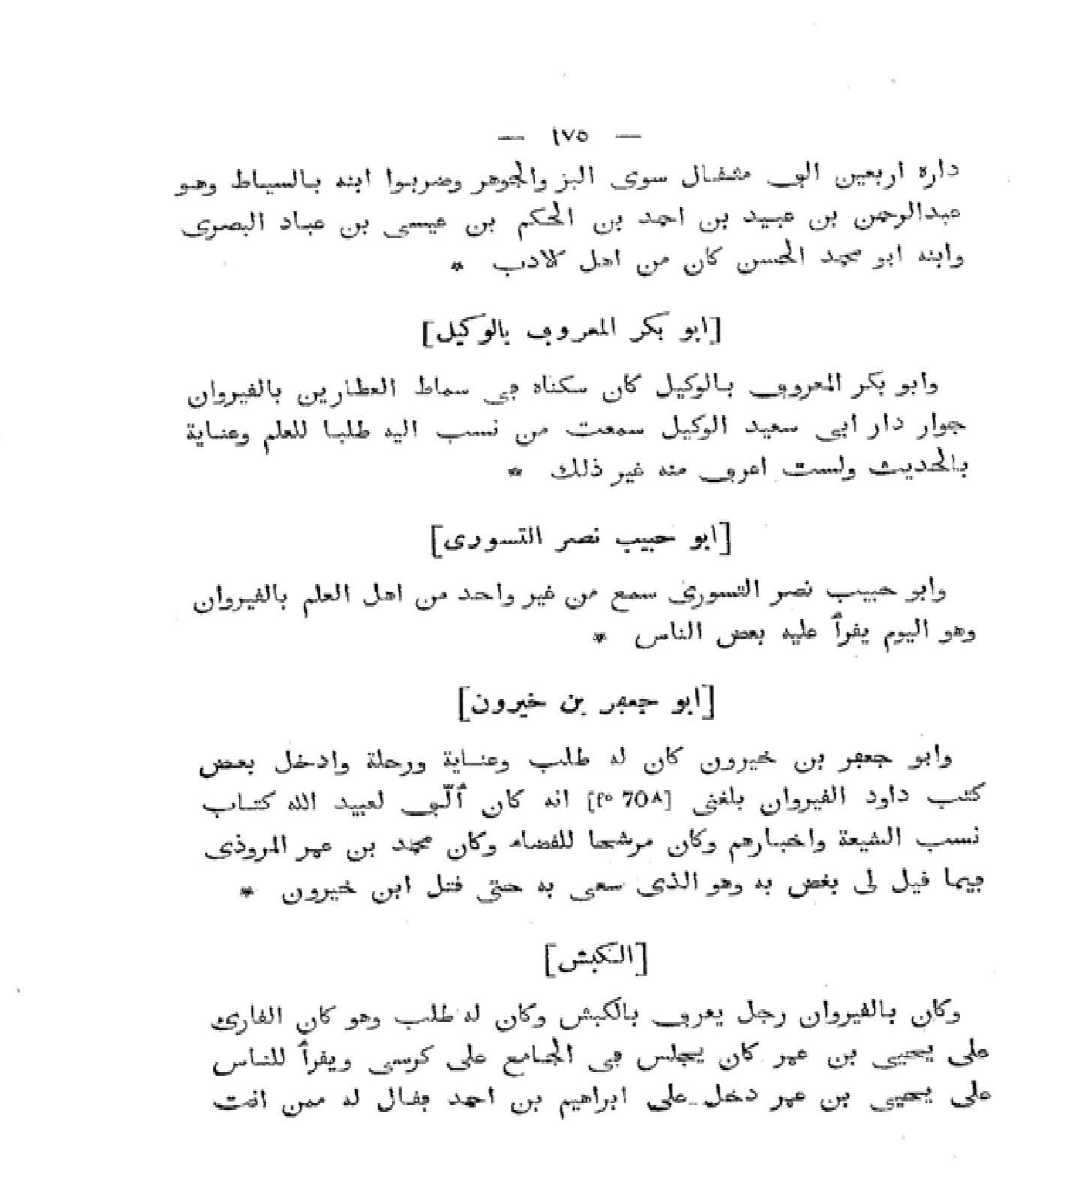 — ١٧٥ —
داره اربعين الف مثقال سوى البز والجوهر وضربوا ابنه بالسياط وهو
عبدالرحمن بن عبيد بن احمد بن الحكم بن عيسى بن عباد البصرى
وابنه ابو محمد الحسن كان من اهل الادب *
[ابو بكر المعروف بالوكيل]
وابو بكر المعروف بالوكيل كان سكناه في سماط العطارين بالقيروان
جوار دار ابى سعيد الوكيل سمعت من نسب اليه طلبا للعلم وعناية
بالحديث ولست اعرف منه غير ذلك *
[ابو حبيب نصر التسورى]
وابو حبيب نصر التسورى سمع من غير واحد من اهل العلم بالقيروان
وهو اليوم يقرأ عليه بعض الناس *
[ابو جعفر بن خيرون]
وابو جعفر بن خيرون كان له طلب وعناية ورحلة وادخل بعض
كتب داود القيروان بلغنى [fº 70ᴬ] انه كان ألّف لعبيد الله كتاب
نسب الشيعة واخبارهم وكان مرشحا للقضاء وكان محمد بن عمر المروذى
فيما قيل لى يغض به وهو الذى سعى به حتى قتل ابن خيرون *
[الكبش]
وكان بالقيروان رجل يعرف بالكبش وكان له طلب وهو كان القارئ
على يحيى بن عمر كان يجلس في الجامع على كرسى ويقرأ للناس
على يحيى بن عمر دخل على ابراهيم بن احمد فقال له ممن انت